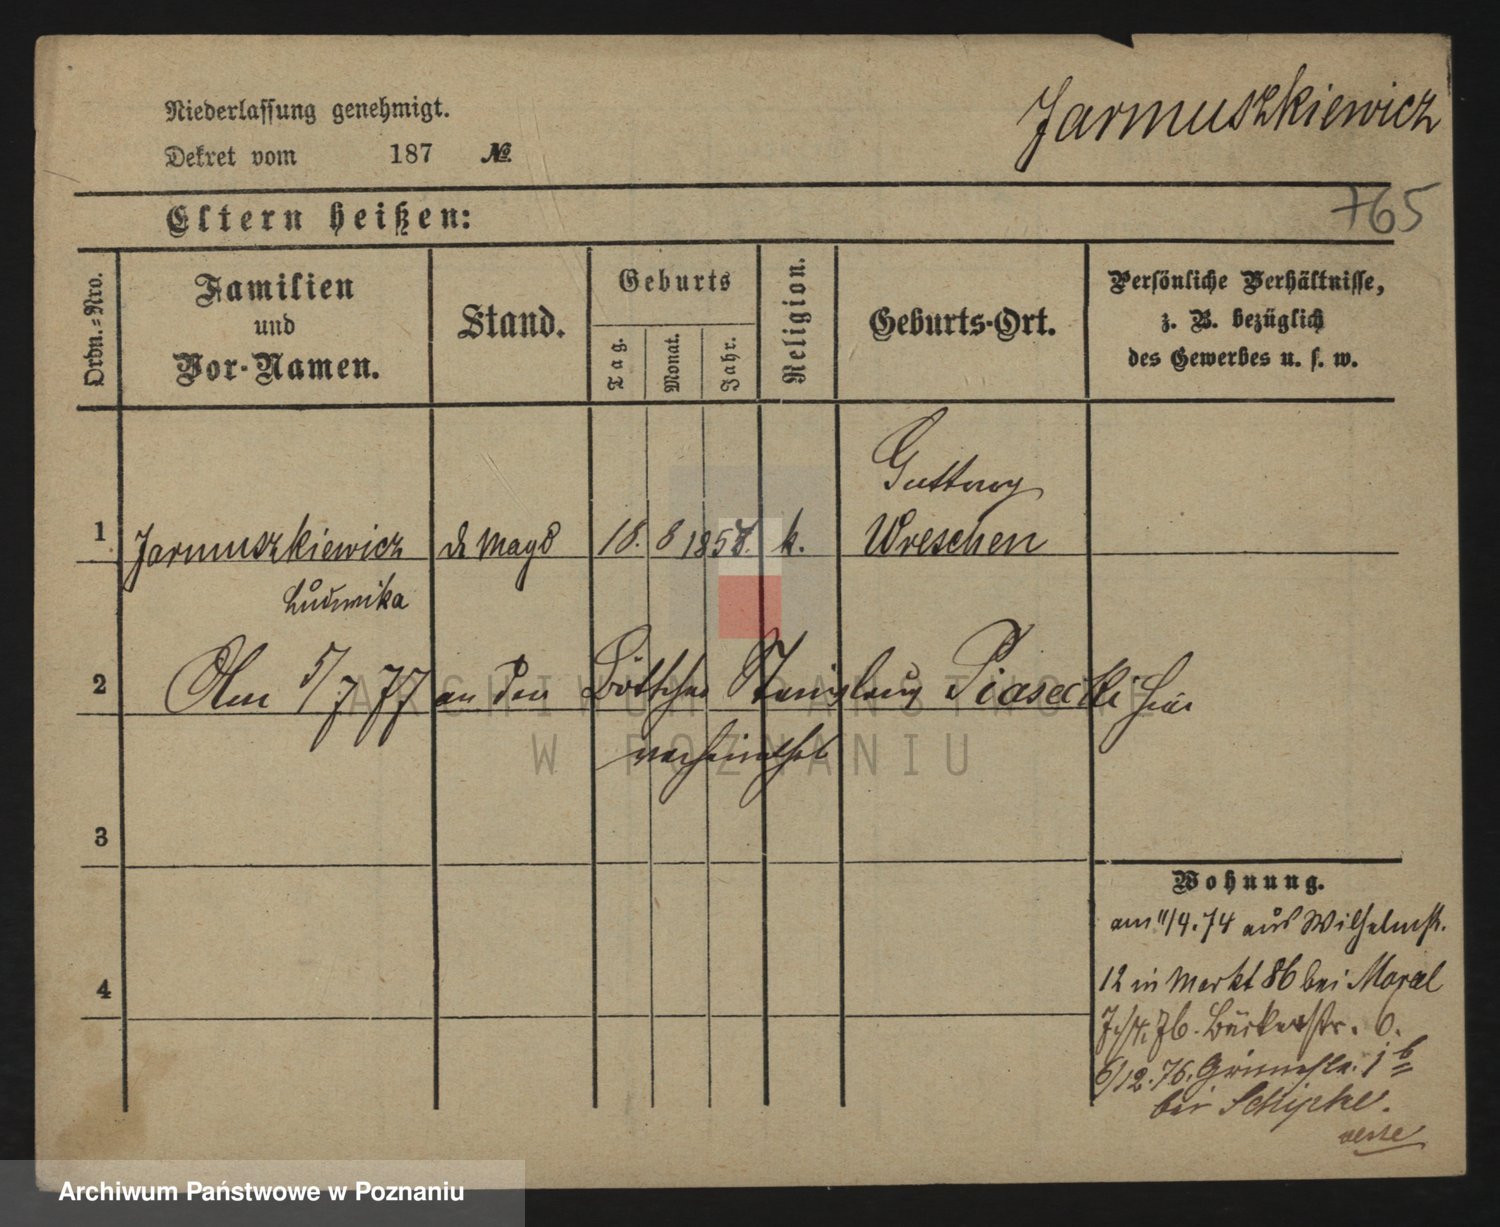 Niederlassung genehmigt.
Dekret vom 187 №
Jarmuszkiewicz
765
Eltern heißen:
Ordn.-Nro.
Familien und Vor-Namen.
Stand.
Geburts
Tag.
Monat.
Jahr.
Religion.
Geburts-Ort.
Persönliche Verhältnisse,
z. B. bezüglich
des Gewerbes u. s. w.
1 Jarmuszkiewicz d. Magd 18. 8 1858. k.
Guttowy
Wreschen
Ludwika
2 Am 5/7 77 an den Böttcher Stanislaus Piasecki hier
verheirathet
3
4
Wohnung.
am 11/4. 74 aus Wilhelmstr.
12 in Markt 86 bei Moral
76. Bäckerstr. 6.
6/12. 76. 1 b
bei
ARCHIWUM PAŃSTWOWE
W POZNANIU
Archiwum Państwowe w Poznaniu